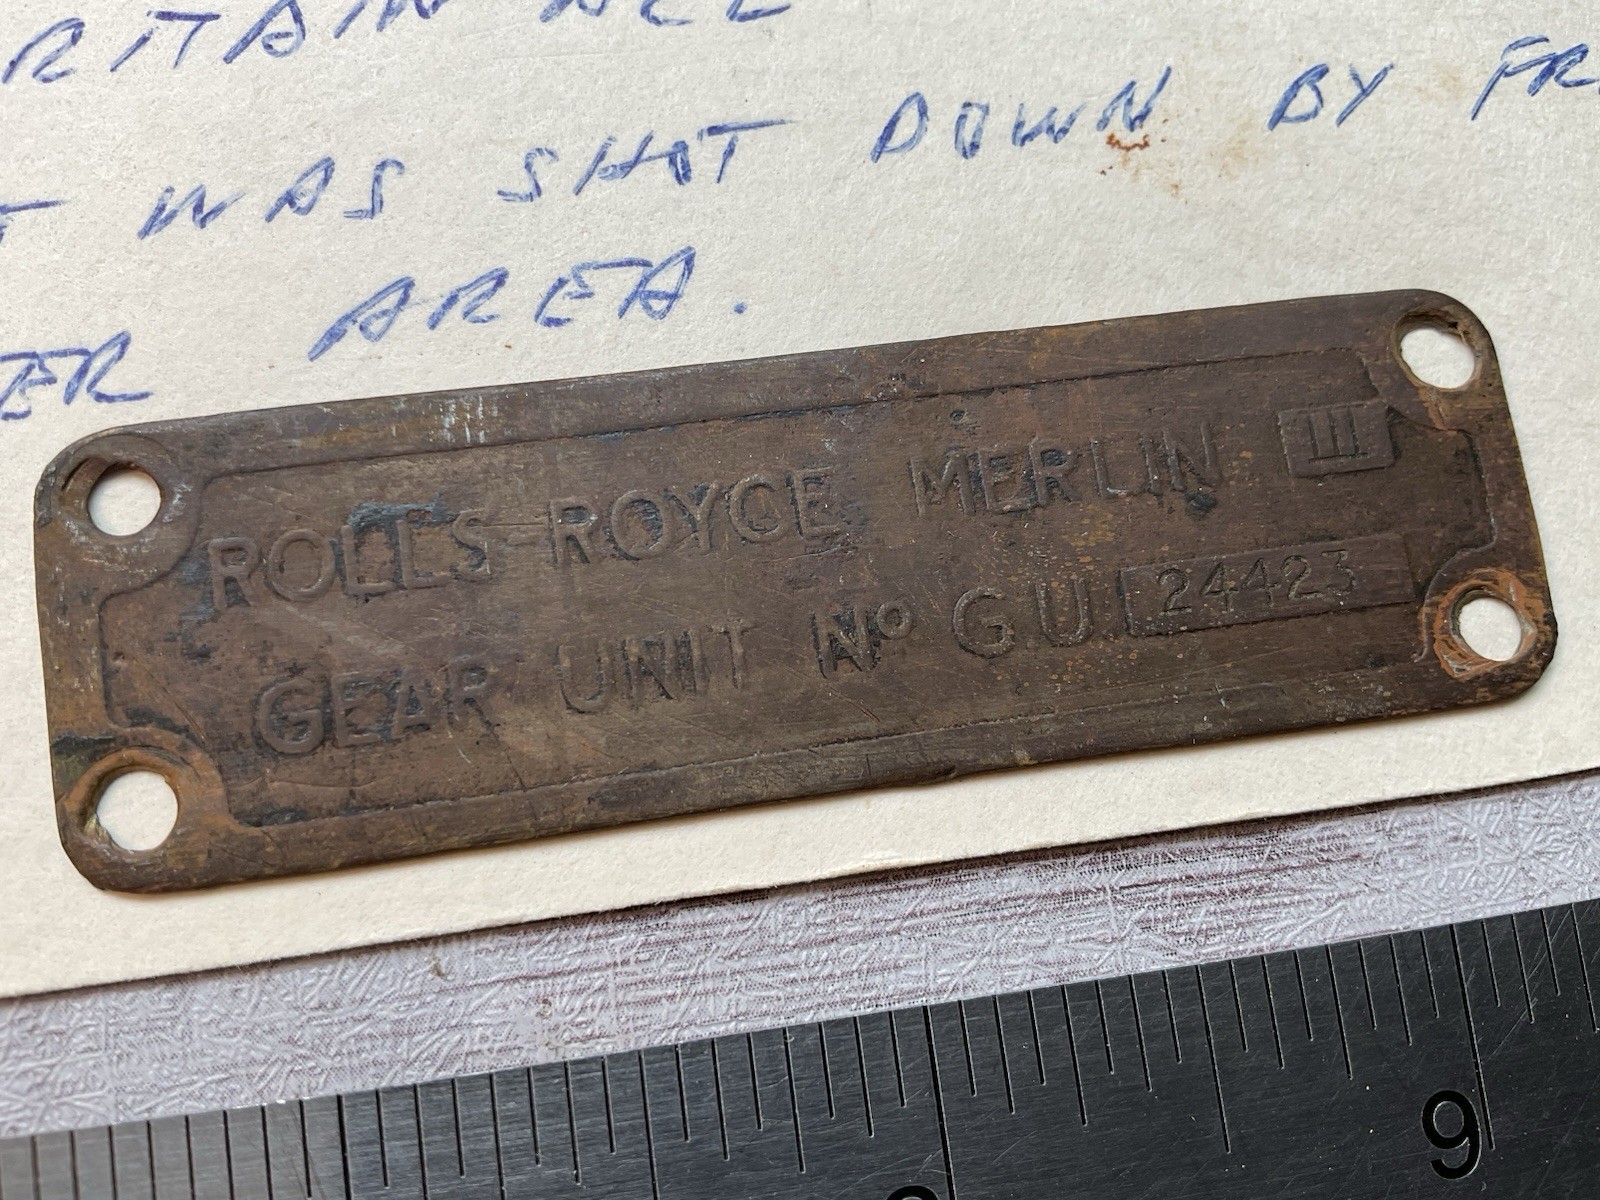 WAS SHOT DOWN BY
AREA.
ROLLS-ROYCE MERLIN III
GEAR UNIT Nº G.U. 24423
9